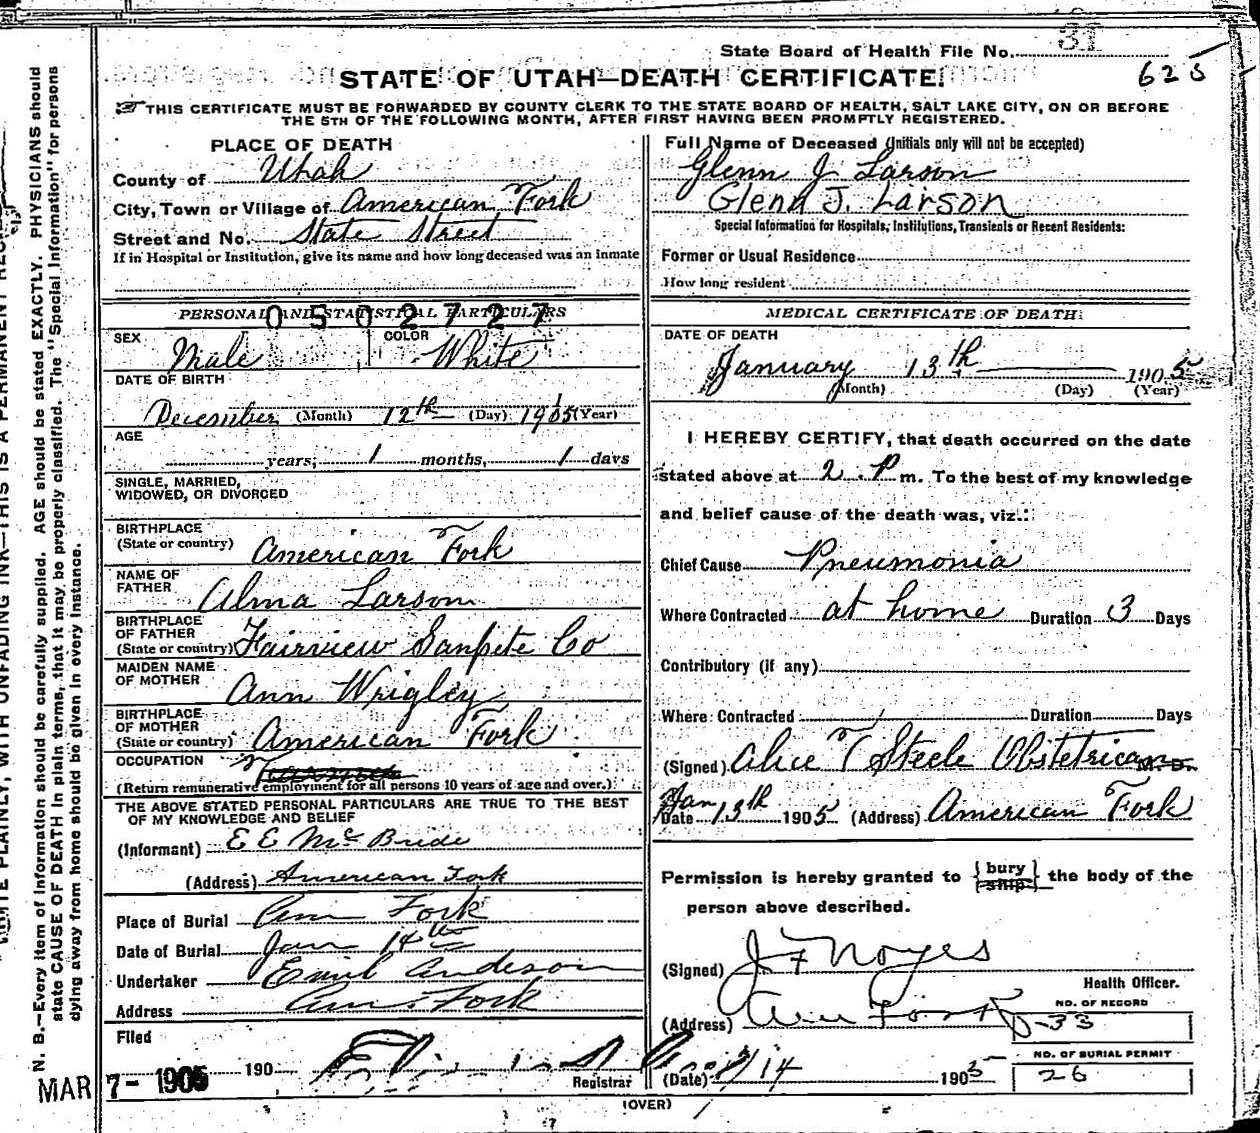 State Board of Health File No. 31
625
STATE OF UTAH—DEATH CERTIFICATE.
THIS CERTIFICATE MUST BE FORWARDED BY COUNTY CLERK TO THE STATE BOARD OF HEALTH, SALT LAKE CITY, ON OR BEFORE
THE 5TH OF THE FOLLOWING MONTH, AFTER FIRST HAVING BEEN PROMPTLY REGISTERED.
PLACE OF DEATH
County of Utah
City, Town or Village of American Fork
Street and No. State Street
If in Hospital or Institution, give its name and how long deceased was an inmate
PERSONAL AND STATISTICAL PARTICULARS
0502727
SEX Male COLOR White
DATE OF BIRTH
December (Month) 12th (Day) 1905 (Year)
AGE
years, 1 months, 1 days
SINGLE, MARRIED,
WIDOWED, OR DIVORCED
BIRTHPLACE
(State or country) American Fork
NAME OF
FATHER Alma Larson
BIRTHPLACE
OF FATHER
(State or country) Fairview Sanpete Co
MAIDEN NAME
OF MOTHER Ann Wrigley
BIRTHPLACE
OF MOTHER
(State or country) American Fork
OCCUPATION
(Return remunerative employment for all persons 10 years of age and over.)
THE ABOVE STATED PERSONAL PARTICULARS ARE TRUE TO THE BEST
OF MY KNOWLEDGE AND BELIEF
(Informant) E E McBride
(Address) American Fork
Place of Burial Am Fork
Date of Burial Jan 14th
Undertaker Emil Anderson
Address Am. Fork
Filed
MAR 7-1905 190 Registrar
Full Name of Deceased (Initials only will not be accepted)
Glenn J Larson
Glenn J. Larson
Special Information for Hospitals, Institutions, Transients or Recent Residents:
Former or Usual Residence
How long resident
MEDICAL CERTIFICATE OF DEATH
DATE OF DEATH
January 13th 1905
(Month) (Day) (Year)
I HEREBY CERTIFY, that death occurred on the date
stated above at 2 P m. To the best of my knowledge
and belief cause of the death was, viz.:
Chief Cause Pneumonia
Where Contracted at home Duration 3 Days
Contributory (if any)
Where Contracted Duration Days
(Signed) Alice T Steele Obstetrican M.D.
Date Jan 13th 1905 (Address) American Fork
Permission is hereby granted to {bury ship} the body of the
person above described.
(Signed) J F Noyes
Health Officer.
(Address) Am Fork
NO. OF RECORD
33
(Date) 1/14 1905
NO. OF BURIAL PERMIT
26
(OVER)
N. B.—Every item of information should be carefully supplied. AGE should be stated EXACTLY. PHYSICIANS should
state CAUSE OF DEATH in plain terms, that it may be properly classified. The "Special Information" for persons
dying away from home should be given in every instance.
PLAINLY, WITH UNFADING INK—THIS IS A PERMANENT